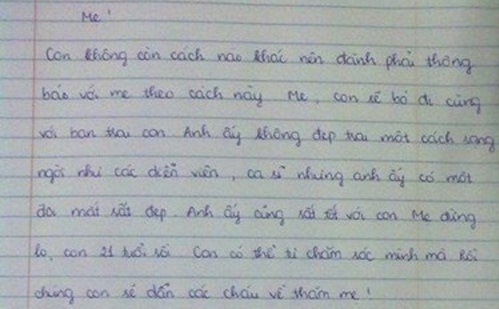 Mẹ!
Con không còn cách nào khác nên đành phải thông
báo với mẹ theo cách này Mẹ, con sẽ bỏ đi cùng
với bạn trai con Anh ấy không đẹp trai một cách sáng
ngời như các diễn viên, ca sĩ nhưng anh ấy có một
đôi mắt rất đẹp. Anh ấy cũng rất tốt với con Mẹ đừng
lo, con 21 tuổi rồi Con có thể tự chăm sóc mình mà Rồi
chúng con sẽ dẫn các cháu về thăm mẹ!